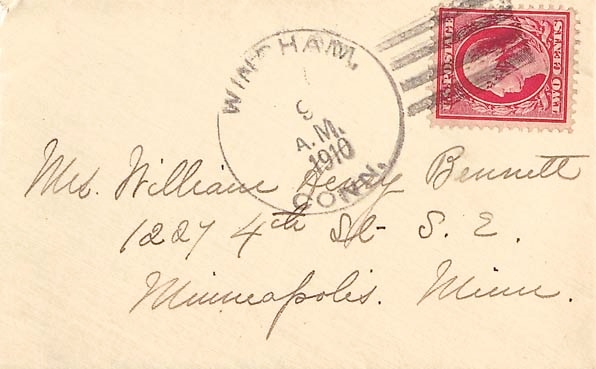 WINDHAM,
9
A.M.
1910
CONN.
U.S. POSTAGE
TWO CENTS
Mrs. William Henry Bennett
1227 4th St. S. E.
Minneapolis. Minn.